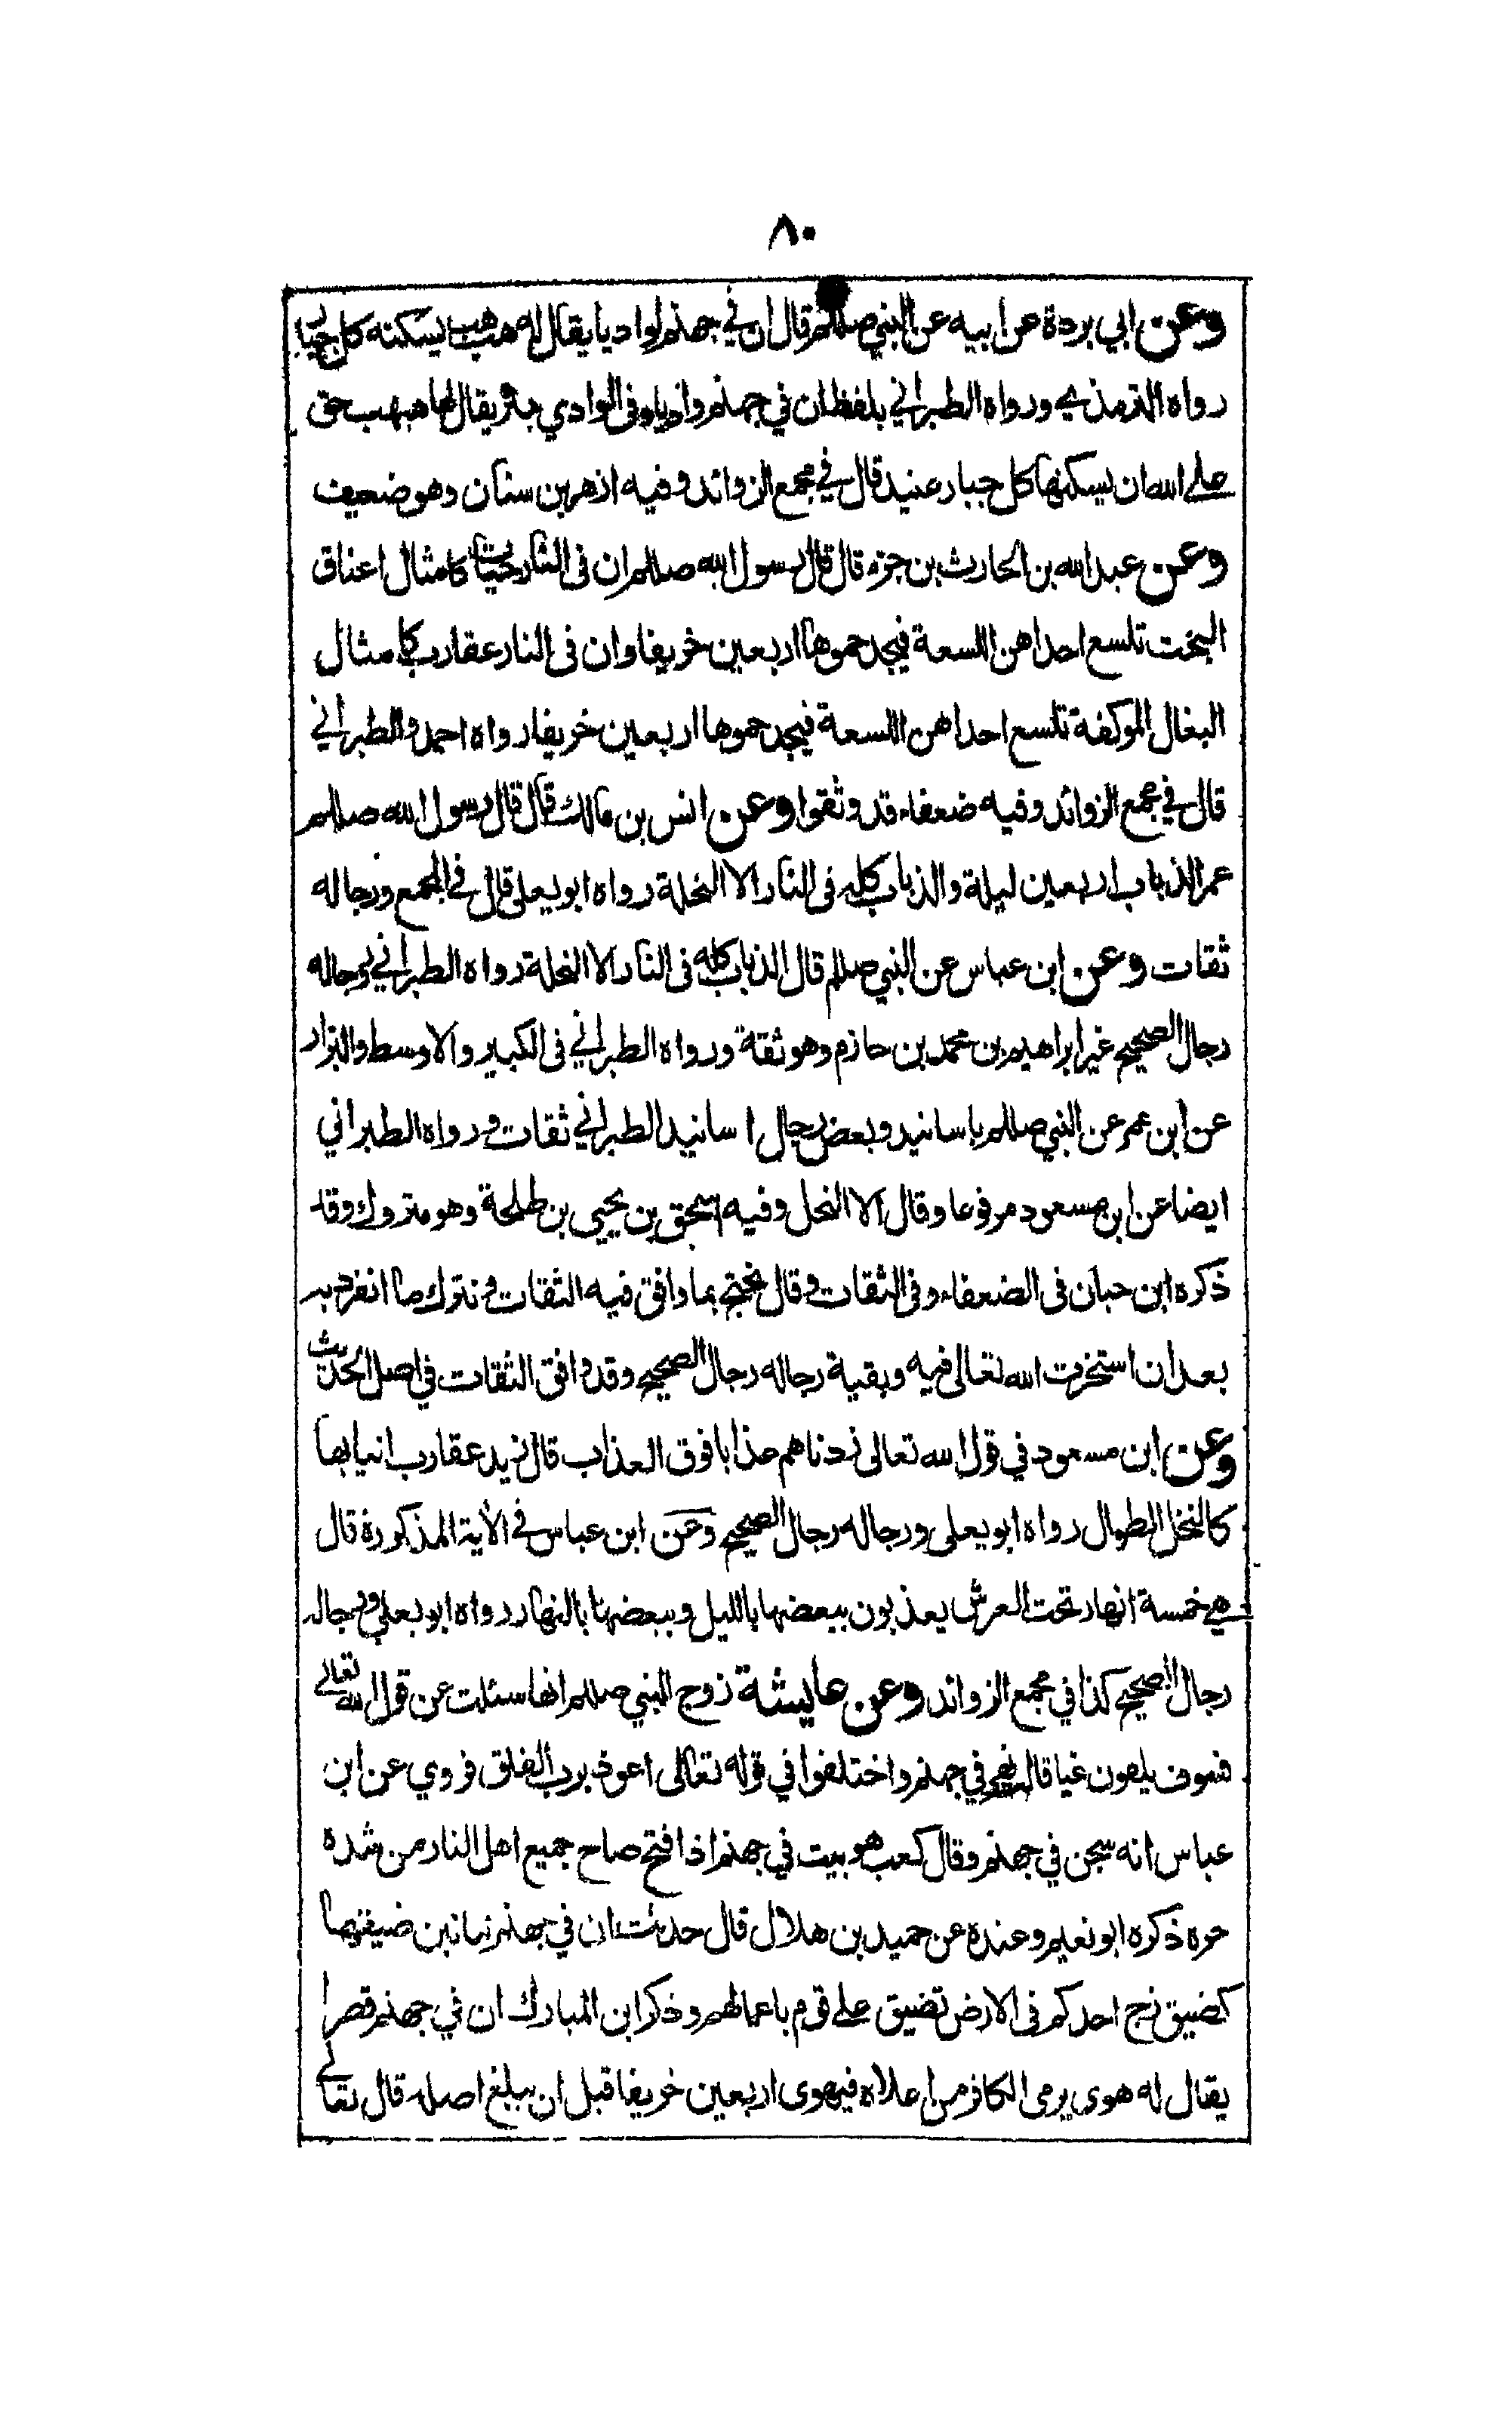 ٨٠
وعن ابي بردة عن ابيه عن النبي صللم قال ان في جهنم لواديا يقال له هبهب يسكنه كل جبار
رواه الترمذي ورواه الطبراني بلفظ ان في جهنم واديا وفى الوادي بئر يقال لها هبهب حق
على الله ان يسكنها كل جبار عنيد قال في مجمع الزوائد وفيه ازهر بن سنان وهو ضعيف
وعن عبد الله بن الحارث بن جزء قال قال رسول الله صللم ان فى النار حيات كامثال اعناق
البخت تلسع احداهن اللسعة فيجد حموها اربعين خريفا وان فى النار عقارب كامثال
البغال الموكفة تلسع احداهن اللسعة فيجد حموها اربعين خريفا رواه احمد والطبراني
قال في مجمع الزوائد وفيه ضعفاء قد وثقوا وعن انس بن مالك قال قال رسول الله صللم
عمر الذباب اربعين ليلة والذباب كله فى النار الا النحلة رواه ابو يعلى قال في المجمع ورجاله
ثقات وعن ابن عباس عن النبي صللم قال الذباب كله فى النار الا النحلة رواه الطبراني ورجاله
رجال الصحيح غير ابراهيم بن محمد بن حازم وهو ثقة ورواه الطبراني فى الكبير والاوسط والبزار
عن ابن عمر عن النبي صللم باسانيد وبعض رجال اسانيد الطبراني ثقات ورواه الطبراني
ايضا عن ابن مسعود مرفوعا وقال الا النحل وفيه اسحق بن يحيى بن طلحة وهو متروك وقد
ذكره ابن حبان فى الضعفاء وفى الثقات وقال يحتج بما وافق فيه الثقات ونترك ما انفرد به
بعد ان استخرت الله تعالى فيه وبقية رجاله رجال الصحيح وقد وافق الثقات في اصل الحديث
وعن ابن مسعود في قول الله تعالى زدناهم عذابا فوق العذاب قال زيد عقارب انيابها
كالنخل الطوال رواه ابو يعلى ورجاله رجال الصحيح وعن ابن عباس في الأية المذكورة قال
هي خمسة انهار تحت العرش يعذبون ببعضها بالليل وببعضها بالنهار رواه ابو يعلى ورجاله
رجال الصحيح كذا في مجمع الزوائد وعن عايشة زوج النبي صللم انها سئلت عن قول الله تعالى
فسوف يلقون غيا قالت نهر في جهنم واختلفوا في قوله تعالى اعوذ برب الفلق فروي عن ابن
عباس انه سجن في جهنم وقال كعب هو بيت في جهنم اذا فتح صاح جميع اهل النار من شدة
حره ذكره ابو نعيم وعنده عن حميد بن هلال قال حدثت ان في جهنم تنانين ضيقتها
كضيق زج احدكم فى الارض تضيق على قوم باعمالهم وذكر ابن المبارك ان في جهنم قصرا
يقال له هوى يرمى الكافر من اعلاه فيهوى اربعين خريفا قبل ان يبلغ اصله قال تعالى